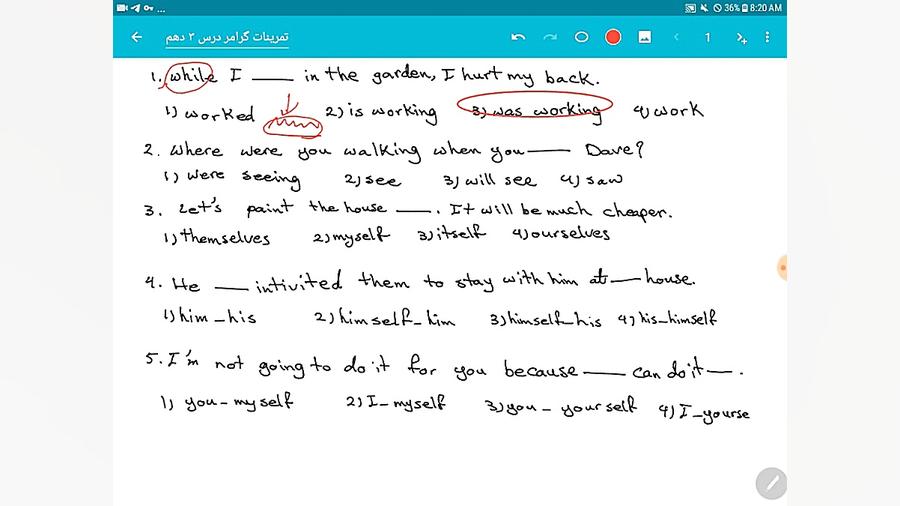 36% 8:20 AM
تمرینات گرامر درس ۳ دهم
1
1. while I ___ in the garden, I hurt my back.
1) worked 2) is working 3) was working 4) work
2. Where were you walking when you ___ Dave?
1) were seeing 2) see 3) will see 4) saw
3. Let's paint the house ___. It will be much cheaper.
1) themselves 2) myself 3) itself 4) ourselves
4. He ___ intivited them to stay with him at ___ house.
1) him - his 2) himself - him 3) himself - his 4) his - himself
5. I'm not going to do it for you because ___ can do it ___.
1) you - myself 2) I - myself 3) you - yourself 4) I - yourse